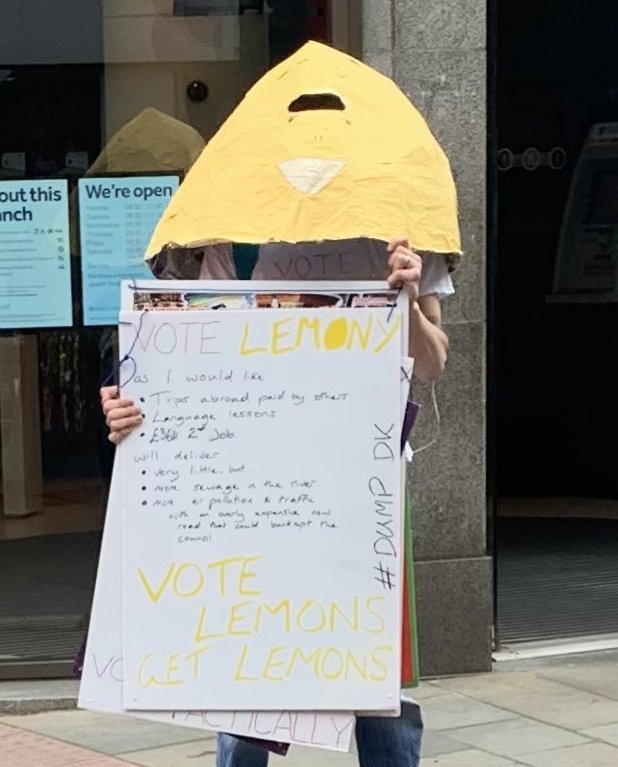 out this
nch
We're open
VOTE
VOTE LEMONY
as I would like
• Trips abroad paid by others
• Language lessons
• £36k 2nd Job
will deliver
• very little, but...
• more sewage in the river
• more air pollution & traffic
with an overly expensive new
road that could bankrupt the
council
#DUMP DK
VOTE
LEMONS
GET LEMONS
VO
TACTICALLY